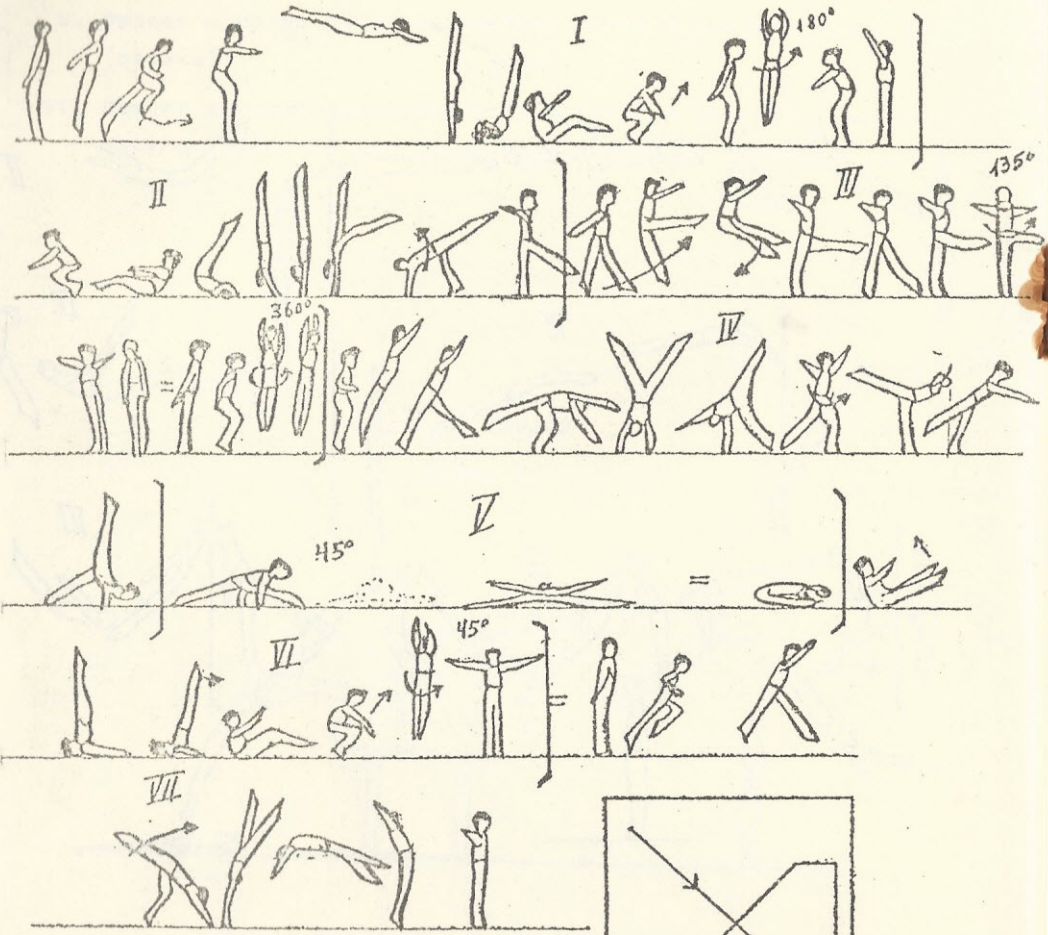 I 180°
II III 135°
= 360° IV
45° V =
VI 45° =
VII